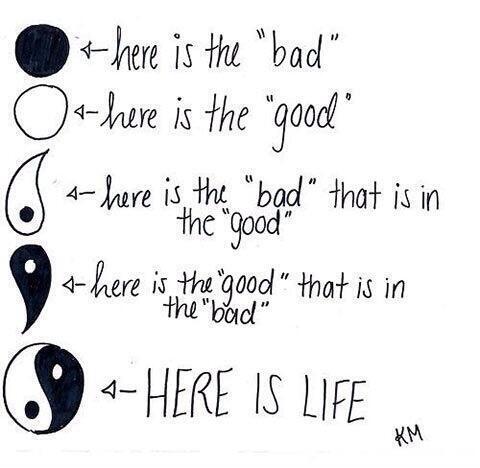 here is the "bad"
here is the "good"
here is the "bad" that is in
the "good"
here is the "good" that is in
the "bad"
HERE IS LIFE
KM